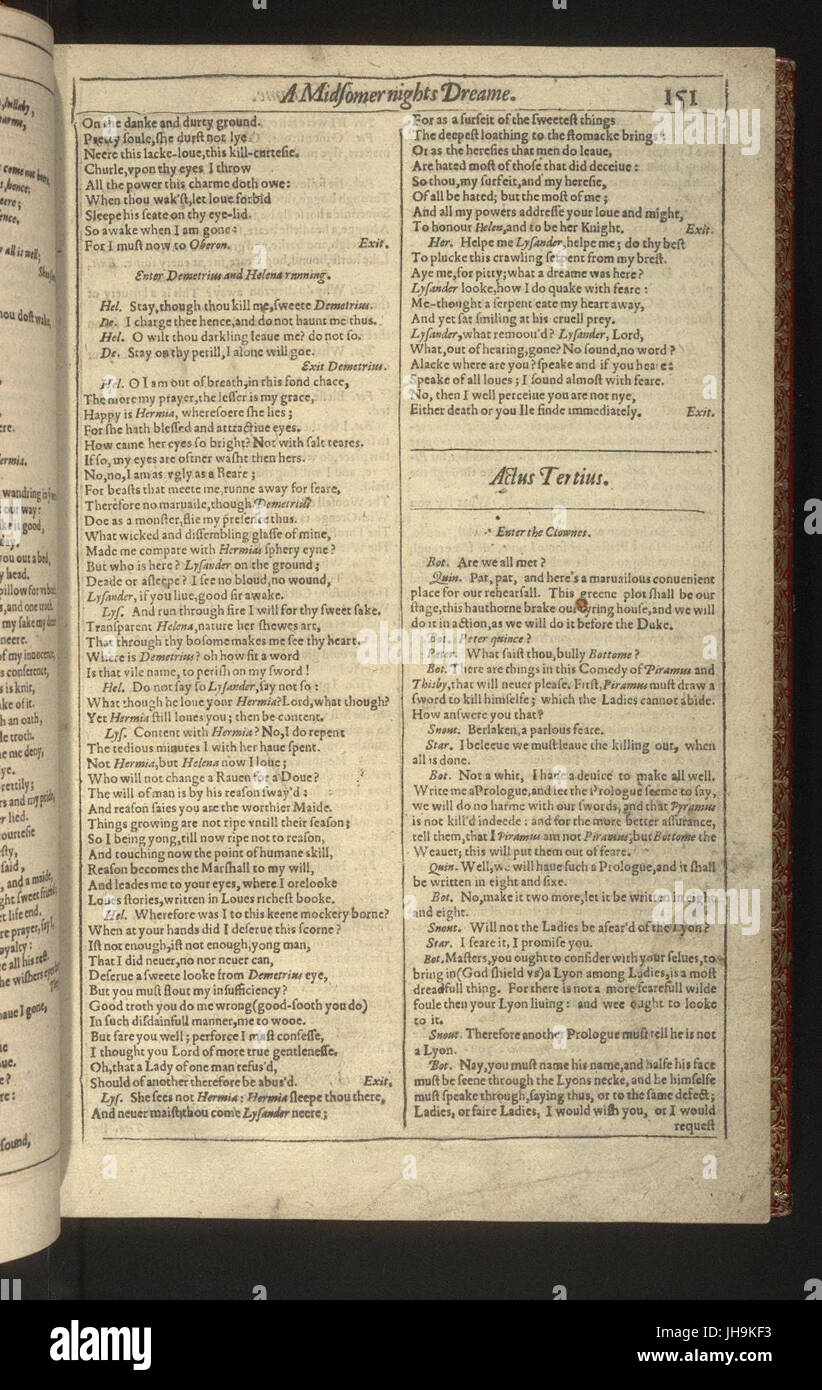 A Midſomer nights Dreame. 151
On the danke and durty ground.
Pretty ſoule, ſhe durſt not lye
Neere this lacke-loue, this kill-curteſie.
Churle, vpon thy eyes I throw
All the power this charme doth owe:
When thou wak'ſt, let loue forbid
Sleepe his ſeate on thy eye-lid.
So awake when I am gone:
For I muſt now to Oberon. Exit.
Enter Demetrius and Helena running.
Hel. Stay, though thou kill me, ſweete Demetrius.
De. I charge thee hence, and do not haunt me thus.
Hel. O wilt thou darkling leaue me? do not ſo.
De. Stay on thy perill, I alone will goe.
Exit Demetrius.
Hel. O I am out of breath, in this fond chace,
The more my prayer, the leſſer is my grace,
Happy is Hermia, whereſoere ſhe lies;
For ſhe hath bleſſed and attractiue eyes.
How came her eyes ſo bright? Not with ſalt teares.
If ſo, my eyes are oftner waſht then hers.
No, no, I am as vgly as a Beare;
For beaſts that meete me, runne away for feare,
Therefore no maruaile, though Demetrius
Doe as a monſter, flie my preſence thus.
What wicked and diſſembling glaſſe of mine,
Made me compare with Hermias ſphery eyne?
But who is here? Lyſander on the ground;
Deade or aſleepe? I ſee no bloud, no wound,
Lyſander, if you liue, good ſir awake.
Lyſ. And run through fire I will for thy ſweet ſake.
Tranſparent Helena, nature her ſhewes art,
That through thy boſome makes me ſee thy heart.
Where is Demetrius? oh how fit a word
Is that vile name, to periſh on my ſword!
Hel. Do not ſay ſo Lyſander, ſay not ſo:
What though he loue your Hermia? Lord, what though?
Yet Hermia ſtill loues you; then be content.
Lyſ. Content with Hermia? No, I do repent
The tedious minutes I with her haue ſpent.
Not Hermia, but Helena now I loue;
Who will not change a Rauen for a Doue?
The will of man is by his reaſon ſway'd:
And reaſon ſaies you are the worthier Maide.
Things growing are not ripe vntill their ſeaſon;
So I being yong, till now ripe not to reaſon,
And touching now the point of humane skill,
Reaſon becomes the Marſhall to my will,
And leades me to your eyes, where I orelooke
Loues ſtories, written in Loues richeſt booke.
Hel. Wherefore was I to this keene mockery borne?
When at your hands did I deſerue this ſcorne?
Iſt not enough, iſt not enough, yong man,
That I did neuer, no nor neuer can,
Deſerue a ſweete looke from Demetrius eye,
But you muſt flout my inſufficiency?
Good troth you do me wrong (good-ſooth you do)
In ſuch diſdainfull manner, me to wooe.
But fare you well; perforce I muſt confeſſe,
I thought you Lord of more true gentleneſſe.
Oh, that a Lady of one man refus'd,
Should of another therefore be abus'd. Exit.
Lyſ. She ſees not Hermia: Hermia ſleepe thou there,
And neuer maiſt thou come Lyſander neere;
For as a ſurfeit of the ſweeteſt things
The deepeſt loathing to the ſtomacke brings:
Or as the hereſies that men do leaue,
Are hated moſt of thoſe that did deceiue:
So thou, my ſurfeit, and my hereſie,
Of all be hated; but the moſt of me;
And all my powers addreſſe your loue and might,
To honour Helen, and to be her Knight. Exit.
Her. Helpe me Lyſander, helpe me; do thy beſt
To plucke this crawling ſerpent from my breſt.
Aye me, for pitty; what a dreame was here?
Lyſander looke, how I do quake with feare:
Me-thought a ſerpent eate my heart away,
And yet ſat ſmiling at his cruell prey.
Lyſander, what remoou'd? Lyſander, Lord,
What, out of hearing, gone? No ſound, no word?
Alacke where are you? ſpeake and if you heare:
Speake of all loues; I ſound almoſt with feare.
No, then I well perceiue you are not nye,
Either death or you Ile finde immediately. Exit.
Actus Tertius.
Enter the Clownes.
Bot. Are we all met?
Quin. Pat, pat, and here's a maruailous conuenient
place for our rehearſall. This greene plot ſhall be our
ſtage, this hauthorne brake our tyring houſe, and we will
do it in action, as we will do it before the Duke.
Bot. Peter quince?
Peter. What ſaiſt thou, bully Bottome?
Bot. There are things in this Comedy of Piramus and
Thisby, that will neuer pleaſe. Firſt, Piramus muſt draw a
ſword to kill himſelfe; which the Ladies cannot abide.
How anſwere you that?
Snout. Berlaken, a parlous feare.
Star. I beleeue we muſt leaue the killing out, when
all is done.
Bot. Not a whit, I haue a deuice to make all well.
Write me a Prologue, and let the Prologue ſeeme to ſay,
we will do no harme with our ſwords, and that Pyramus
is not kill'd indeede: and for the more better aſſurance,
tell them, that I Piramus am not Piramus, but Bottome the
Weauer; this will put them out of feare.
Quin. Well, we will haue ſuch a Prologue, and it ſhall
be written in eight and ſixe.
Bot. No, make it two more, let it be written in eight
and eight.
Snout. Will not the Ladies be afear'd of the Lyon?
Star. I feare it, I promiſe you.
Bot. Maſters, you ought to conſider with your ſelues, to
bring in (God ſhield vs) a Lyon among Ladies, is a moſt
dreadfull thing. For there is not a more fearefull wilde
foule then your Lyon liuing: and wee ought to looke
to it.
Snout. Therefore another Prologue muſt tell he is not
a Lyon.
Bot. Nay, you muſt name his name, and halfe his face
muſt be ſeene through the Lyons necke, and he himſelfe
muſt ſpeake through, ſaying thus, or to the ſame defect;
Ladies, or faire Ladies, I would wiſh you, or I would
requeſt
alamy
alamy
alamy
alamy stock photo
JH9KF3
www.alamy.com